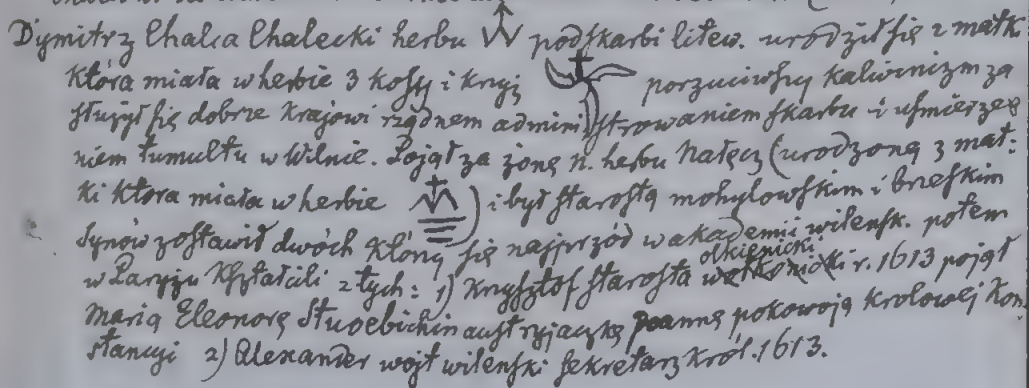 Dymitrz Chalca Chalecki herbu podskarbi litew. urodził się z matki
która miała w herbie 3 kossy i krzyż porzuciwszy kalwinizm za
służył się dobrze krajowi rządnem administrowaniem skarbu i uśmierze
niem tumultu w Wilnie. Pojął za żonę N. herbu Nałęcz (urodzoną z mat:
ki która miała w herbie ) i był starostą mohylowskim i brzeskim
Synów zostawił dwóch którzy się najprzód w akademii wileńsk. potem
olkienicki
w Paryżu kształcili z tych: 1) Krzysztof starosta r. 1613 pojął
Marią Eleonorę austryjaczkę pannę pokojową królowej Kon
stancyi 2) Alexander wojt wileński sekretarz król. 1613.